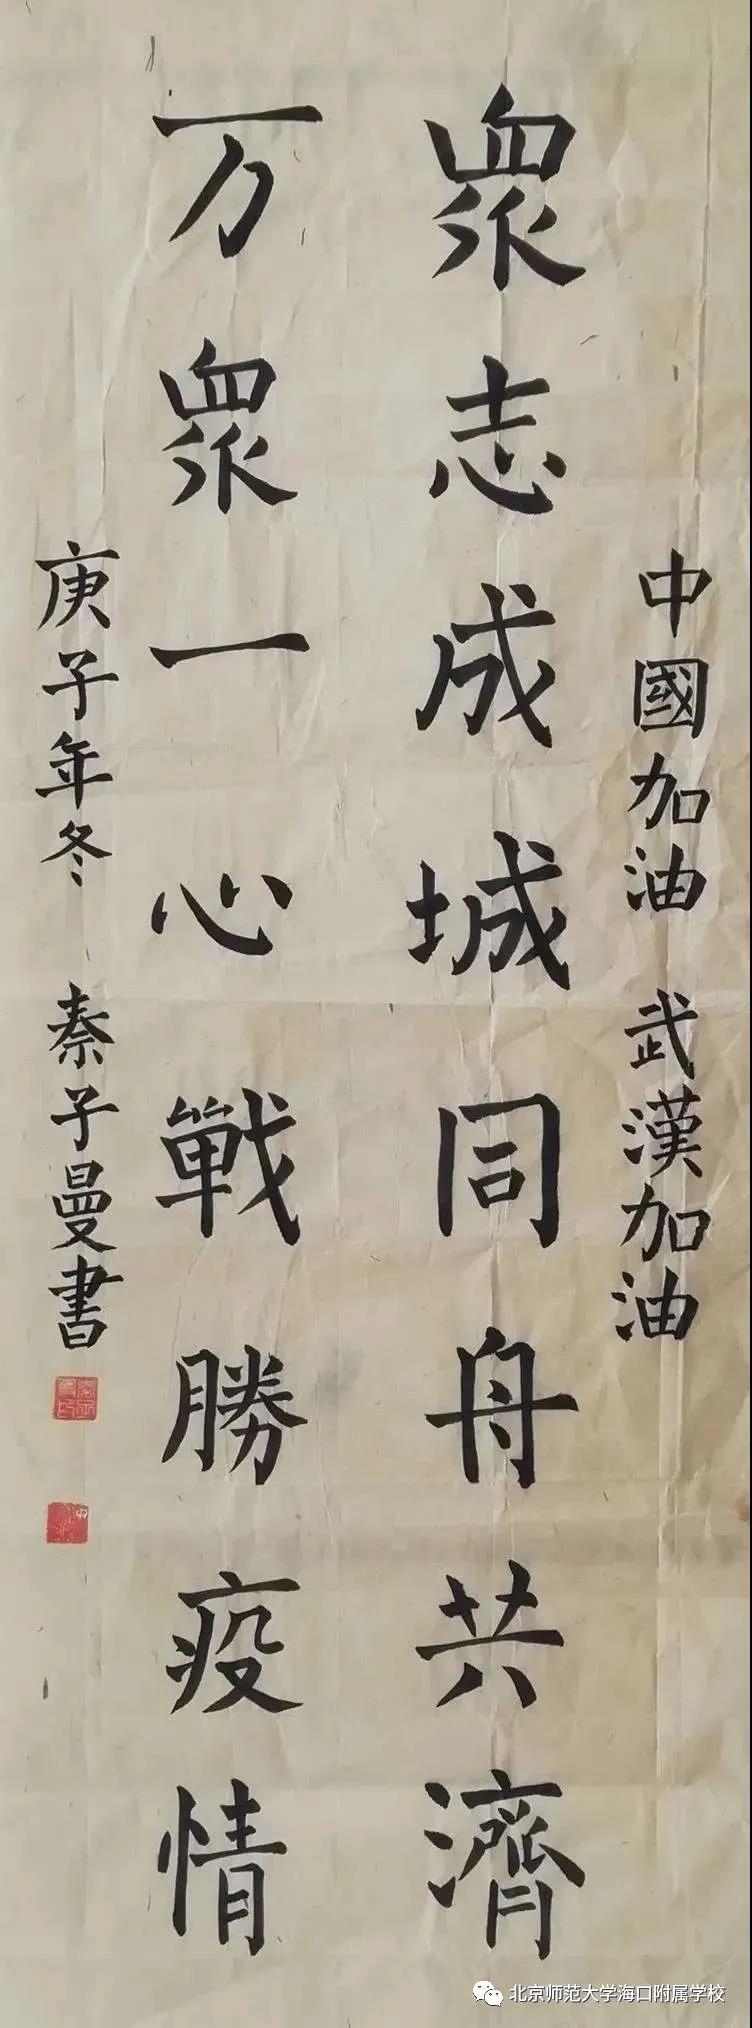 中國加油 武漢加油
眾志成城同舟共濟
万眾一心戰勝疫情
庚子年冬 秦子曼書
北京师范大学海口附属学校